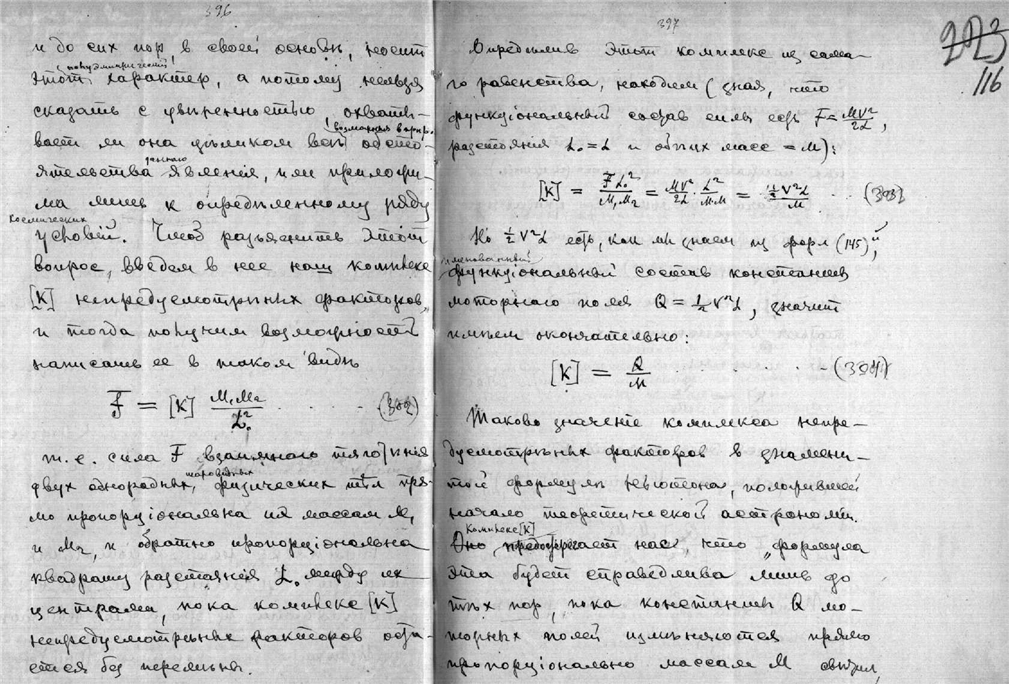 396
и до сих пор, в своей основѣ, носит
полуэмпирический
этот характер, а потому нельзя
сказать с увѣренностью, охваты-
возможныя вариир.
вает ли она цѣликом всѣ обсто-
даннаго
ятельства явленія, или приложи-
ма лишь к опредѣленному ряду
космических
условий. Чтоб разъяснить этот
вопрос, введем в нее наш комплекс
[K] непредусмотрѣнных факторов,
и тогда получим возможность
написать ее в таком видѣ
F = [K] M₁M₂/L₀² . . . . . (392)
т. е. сила F взаимного тяготѣния
шаровидных
двух однородных, физических тѣл пря-
мо пропорціональна их массам M₁
и M₂, и обратно пропорціональна
квадрату разстоянія L₀ между их
центрами, пока комплекс [K]
непредусмотрѣнных факторов оста-
ется без перемѣны.
397
223
116
Опредѣлив этот комплекс из само-
го равенства, находим (зная, что
функціональный состав силы есть F = MV²/2L,
разстоянія L₀ = L и обѣих масс = M):
[K] = F L₀²/M₁M₂ = MV²/2L · L²/M.M = ½V²L/M . . . (393)
Но ½ V²L есть, как мы знаем из форм (145),
именованный
функціональный состав константы
моторнаго поля Q = ½ V²L, значит
имѣем окончательно:
[K] = Q/M . . . . . (394)
Таково значение комплекса непре-
дусмотрѣнных факторов в знамени-
той формулѣ Ньютона, положившей
начало теоретической астрономіи.
Комплекс [K]
Оно предостерегает нас, что формула
эта будет справедлива лишь до
тѣх пор, пока константы Q мо-
торных полей измѣняются прямо
пропорціонально массам M